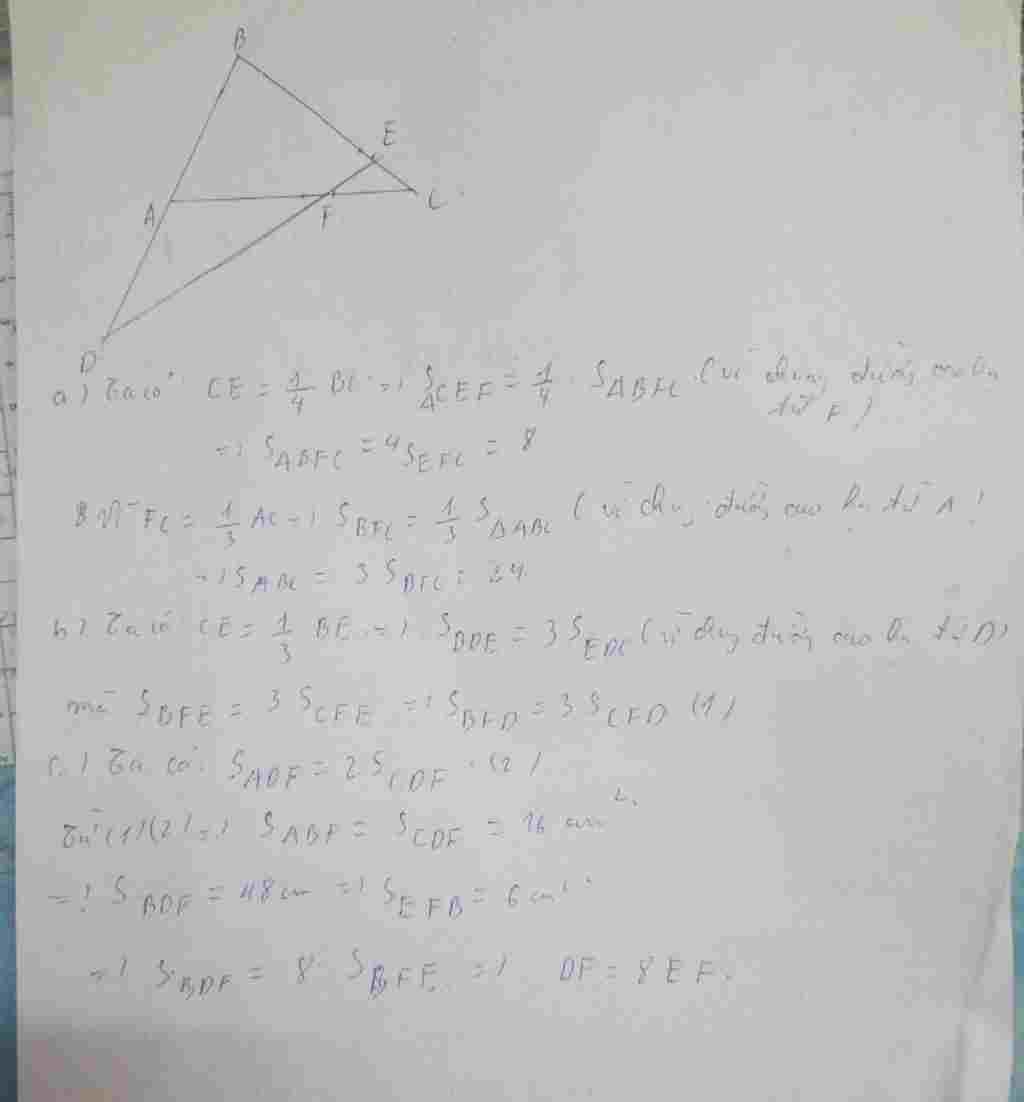 B
E
A
F
C
D
a) Ta có CE = 1/4 BC => S△CEF = 1/4 . S△BFC (vì chung đường cao hạ từ F)
=> S△BFC = 4 SEFC = 8
Vì FC = 1/3 AC => SBFC = 1/3 S△ABC (vì chung đường cao hạ từ
=> SABC = 3 SBFC = 24
b) Ta có CE = 1/3 BE => SBDE = 3 SEDC (vì chung đường cao hạ từ D)
mà SBFE = 3 SCFE => SBFD = 3 SCFD (1)
c) Ta có: SADF = 2 SCDF (2)
Từ (1)(2) => SABF = SCDF = 16 cm²
=> SBDF = 48 cm => SEFB = 6 cm²
=> SBDF = 8 SBFE => DF = 8 EF.